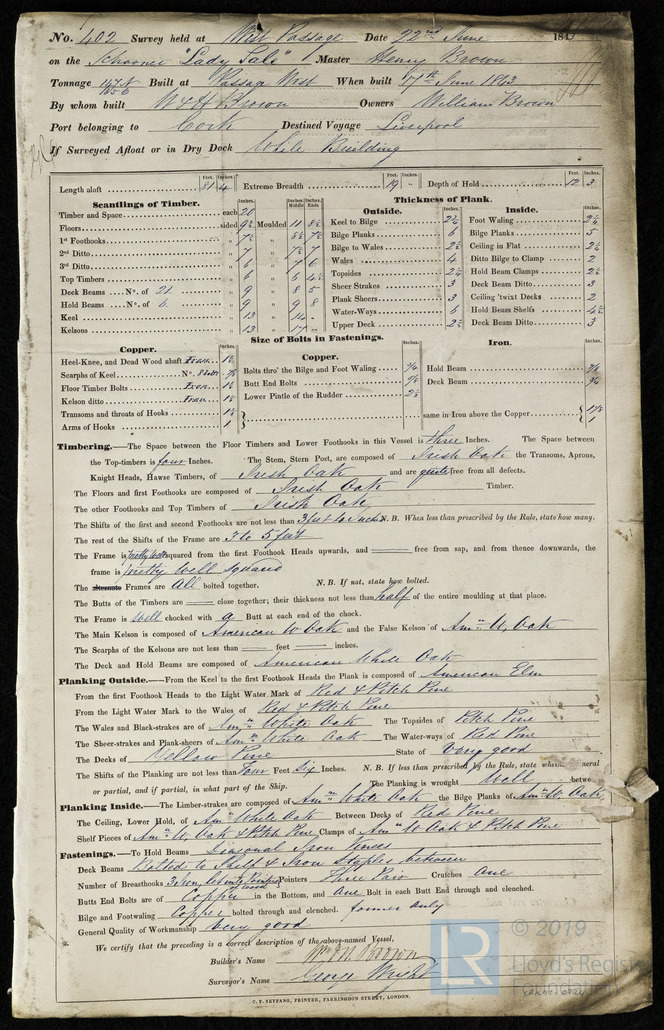 No. 402 Survey held at West Passage Date 22nd June 1843
on the Schooner "Lady Sale" Master Henry Brown
Tonnage Built at Passage West When built 17th June 1843
By whom built W & H Brown Owners William Brown
Port belonging to Cork Destined Voyage Liverpool
If Surveyed Afloat or in Dry Dock While Building
Feet. Inches. Feet. Inches. Feet. Inches.
Length aloft 81 4 Extreme Breadth 19 " Depth of Hold 12 3
Scantlings of Timber.
Inches. Inches Middle Inches Ends
Timber and Space each 20
Floors sided 9½ Moulded 11 8½
1st Foothooks " 7½ " 8½ 7½
2nd Ditto " 7 " 7½ 7
3rd Ditto " 6 " 7 6
Top Timbers " 6 " 6 4½
Deck Beams No. of 21 " 9 " 8 5
Hold Beams No. of 6 " 9 " 9 8
Keel " 13 " 14 -
Kelsons " 13 " 17 -
Thickness of Plank.
Outside. Inches. Inside. Inches.
Keel to Bilge 2½ Foot Waling 2½
Bilge Planks 6 Bilge Planks 5
Bilge to Wales 2½ Ceiling in Flat 2½
Wales 4 Ditto Bilge to Clamp 2
Topsides 2½ Hold Beam Clamps 2½
Sheer Strakes 3 Deck Beam Ditto 3
Plank Sheers 3 Ceiling 'twixt Decks 2
Water-Ways 6 Hold Beam Shelfs 4½
Upper Deck 2½ Deck Beam Ditto 3
Size of Bolts in Fastenings.
Copper. Inches. Copper. Inches. Iron. Inches.
Heel-Knee, and Dead Wood abaft Iron
Scarphs of Keel No. 8 bolts
Floor Timber Bolts Iron
Kelson ditto Iron
Transoms and throats of Hooks
Arms of Hooks 1
Bolts thro' the Bilge and Foot Waling
Butt End Bolts
Lower Pintle of the Rudder
Hold Beam
Deck Beam
same in Iron above the Copper
Timbering.—The Space between the Floor Timbers and Lower Foothooks in this Vessel is three Inches. The Space between
the Top-timbers is four Inches. The Stem, Stern Post, are composed of Irish Oak the Transoms, Aprons,
Knight Heads, Hawse Timbers, of Irish Oak and are quite free from all defects.
The Floors and first Foothooks are composed of Irish Oak Timber.
The other Foothooks and Top Timbers of Irish Oak
The Shifts of the first and second Foothooks are not less than 3 feet 10 inches N. B. When less than prescribed by the Rule, state how many.
The rest of the Shifts of the Frame are 3 to 5 feet
The Frame is pretty well squared from the first Foothook Heads upwards, and free from sap, and from thence downwards, the
frame is pretty well squared
The alternate Frames are All bolted together. N. B. If not, state how bolted.
The Butts of the Timbers are close together; their thickness not less than half of the entire moulding at that place.
The Frame is Well chocked with a Butt at each end of the chock.
The Main Kelson is composed of American W Oak and the False Kelson of Amn. W. Oak
The Scarphs of the Kelsons are not less than feet inches.
The Deck and Hold Beams are composed of American White Oak
Planking Outside.—From the Keel to the first Foothook Heads the Plank is composed of American Elm
From the first Foothook Heads to the Light Water Mark of Red & Pitch Pine
From the Light Water Mark to the Wales of Red & Pitch Pine
The Wales and Black-strakes are of Amn. White Oak The Topsides of Pitch Pine
The Sheer-strakes and Plank-sheers of Amn. White Oak The Water-ways of Red Pine
The Decks of Yellow Pine State of Very good
The Shifts of the Planking are not less than Four Feet Six Inches. N. B. If less than prescribed by the Rule, state whether general
or partial, and if partial, in what part of the Ship. The Planking is wrought Well betwe
Planking Inside.—The Limber-strakes are composed of Amn. White Oak the Bilge Planks of Amn. W. Oak
The Ceiling, Lower Hold, of Amn. White Oak Between Decks of Red Pine
Shelf Pieces of Amn. W. Oak & Pitch Pine Clamps of Amn. W Oak & Pitch Pine
Fastenings.—To Hold Beams Diagonal Iron Knees
Deck Beams Bolted to Shelf & Iron Staples between
Number of Breasthooks Pointers Three Pair Crutches One
Butts End Bolts are of Copper in the Bottom, and One Bolt in each Butt End through and clenched.
Bilge and Footwaling Copper bolted through and clenched. former only
General Quality of Workmanship Very good
We certify that the preceding is a correct description of the above-named Vessel,
Builder's Name Wm & H Brown
Surveyor's Name George Wright
C. F. SEYFANG, PRINTER, FARRINGDON STREET, LONDON.
LR
© 2019
Lloyd's Register
Foundation